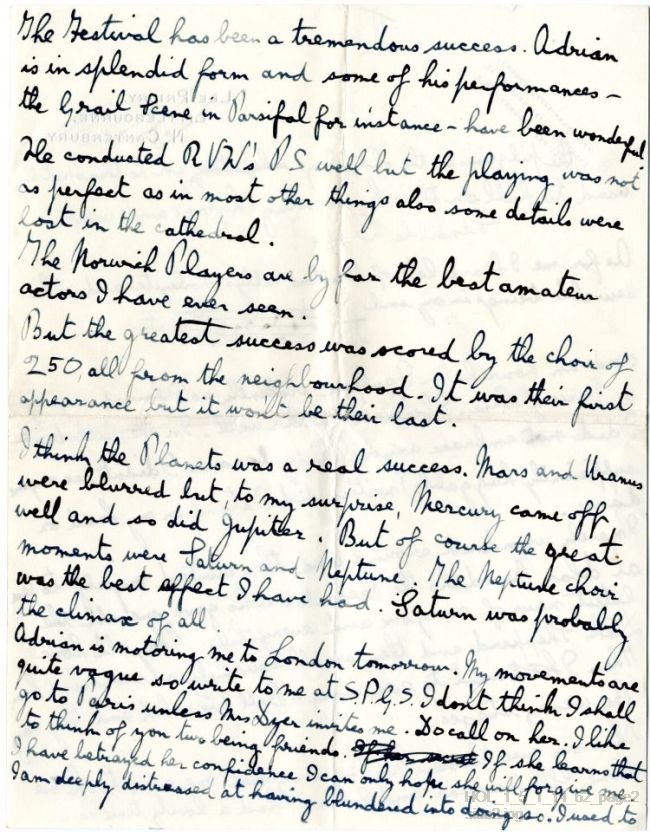 The Festival has been a tremendous success. Adrian
is in splendid form and some of his performances –
the Grail Scene in Parsifal for instance – have been wonderful
He conducted RVW's PS well but the playing was not
as perfect as in most other things also some details were
lost in the cathedral.
The Norwich Players are by far the best amateur
actors I have ever seen.
But the greatest success was scored by the choir of
250, all from the neighbourhood. It was their first
appearance but it won't be their last.
I think the Planets was a real success. Mars and Uranus
were blurred but, to my surprise, Mercury came off
well and so did Jupiter. But of course the great
moments were Saturn and Neptune. The Neptune choir
was the best effect I have had. Saturn was probably
the climax of all
Adrian is motoring me to London tomorrow. My movements are
quite vague so write to me at S.P.G.S. I don't think I shall
go to Paris unless Mrs Dyer invites me. Do call on her. I like
to think of you two being friends. If she learns that
I have betrayed her confidence I can only hope she will forgive me
I am deeply distressed at having blundered into doing so. I used to